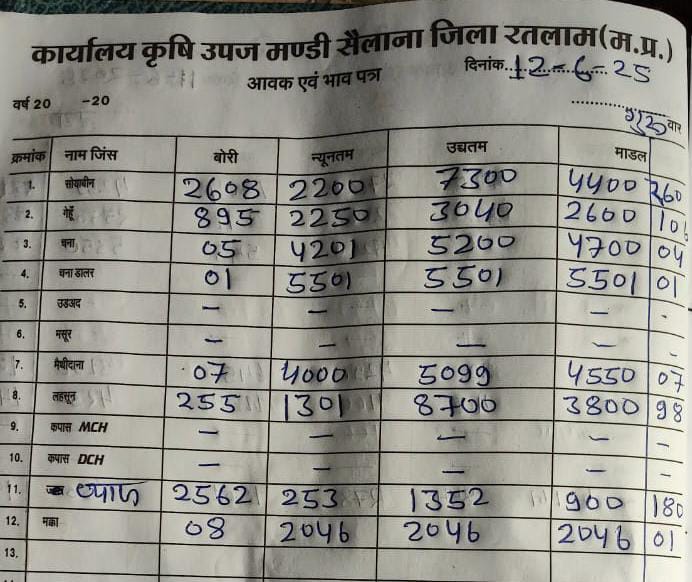 कार्यालय कृषि उपज मण्डी सैलाना जिला रतलाम(म.प्र.)
आवक एवं भाव पत्रा दिनांक..12-6-25
वर्ष 20 -20 गुरुवार
क्रमांक नाम जिंस बोरी न्यूनतम उद्यतम माडल
1. सोयाबीन 2608 2200 7300 4400 260
2. गेहूँ 895 2250 3040 2600
3. चना 05 4201 5200 4700 04
4. चना डालर 01 5501 5501 5501 01
5. उडअद – – – – -
6. मसूर – – – – -
7. मैथीदाना 07 4000 5099 4550 07
8. लहसून 255 1301 8700 3800 98
9. कपास MCH – – – – –
10. कपास DCH – – – – –
11. प्याज 2562 253 1352 900 180
12. मक्का 08 2046 2046 2046 01
13.